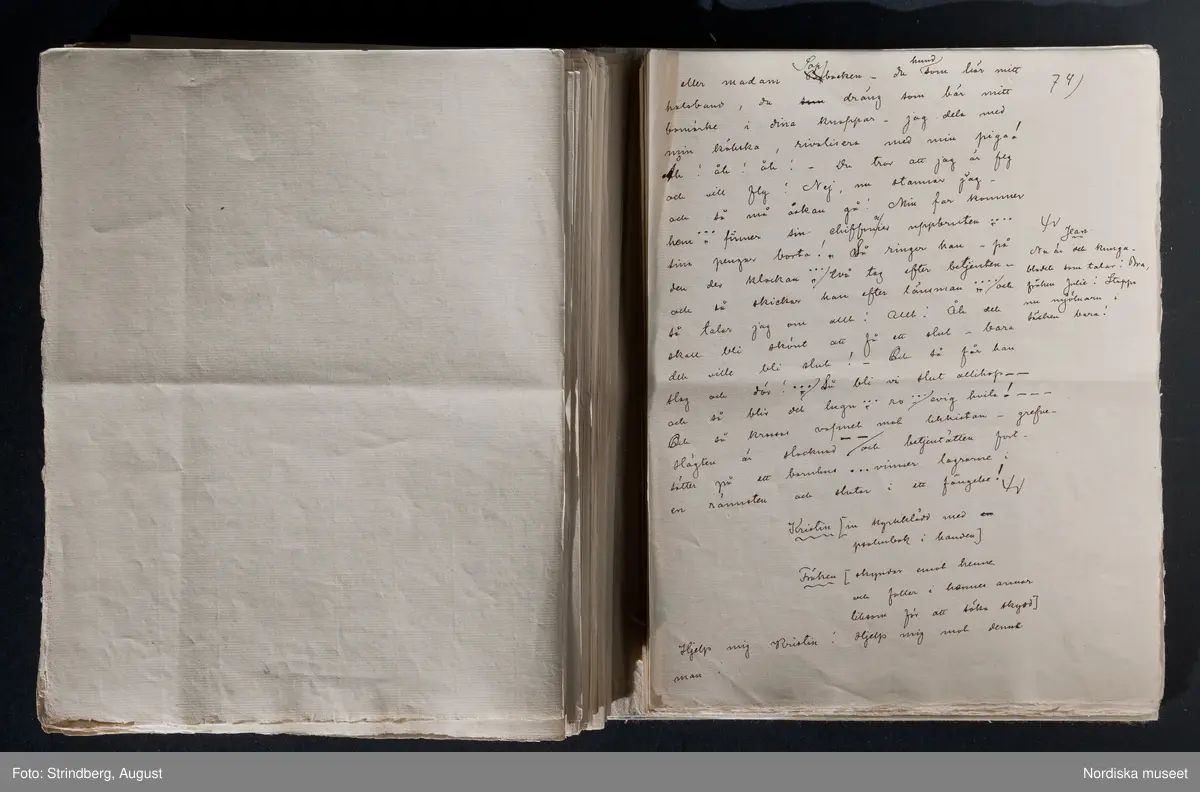 74)
eller madam Sopbacken – du hund som bär mitt
halsband, du som dräng som bär mitt
bomärke i dina knappar – jag dela med
min köksa, rivalisera med min piga!
åh! åh! åh! – Du tror att jag är feg
och vill fly! Nej, nu stannar jag –
och så må åskan gå! Min far kommer
hem ... finner sin chiffonier uppbruten ...
sina pengar borta! Så ringer han – på
den der klockan ... två tag efter betjenten –
och så skickar han efter länsman ... och
så talar jag om allt! Allt! Åh det
skall bli skönt att få ett slut – bara
det ville bli slut! – Och så får han
slag och dör! ... Så bli vi slut allihop – –
och så blir det lugn ... ro ... evig hvila! – – –
Och så krossas vapnet mot likkistan – grefve-
slägten är slocknad – – och betjentätten fort-
sätter på ett barnhus ... vinner lagrarne i
en rännsten och slutar i ett fängelse!
Jean.
Nu är det kunga-
blodet som talar! Bra,
fröken Julie! Stoppa
nu mjölnarn i
säcken bara!
Kristin [in kyrkklädd med en
psalmbok i handen]
Fröken [skyndar emot henne
och faller i hennes armar
liksom för att söka skydd]
Hjelp mig Kristin! Hjelp mig mot denna
man!
Foto: Strindberg, August
Nordiska museet